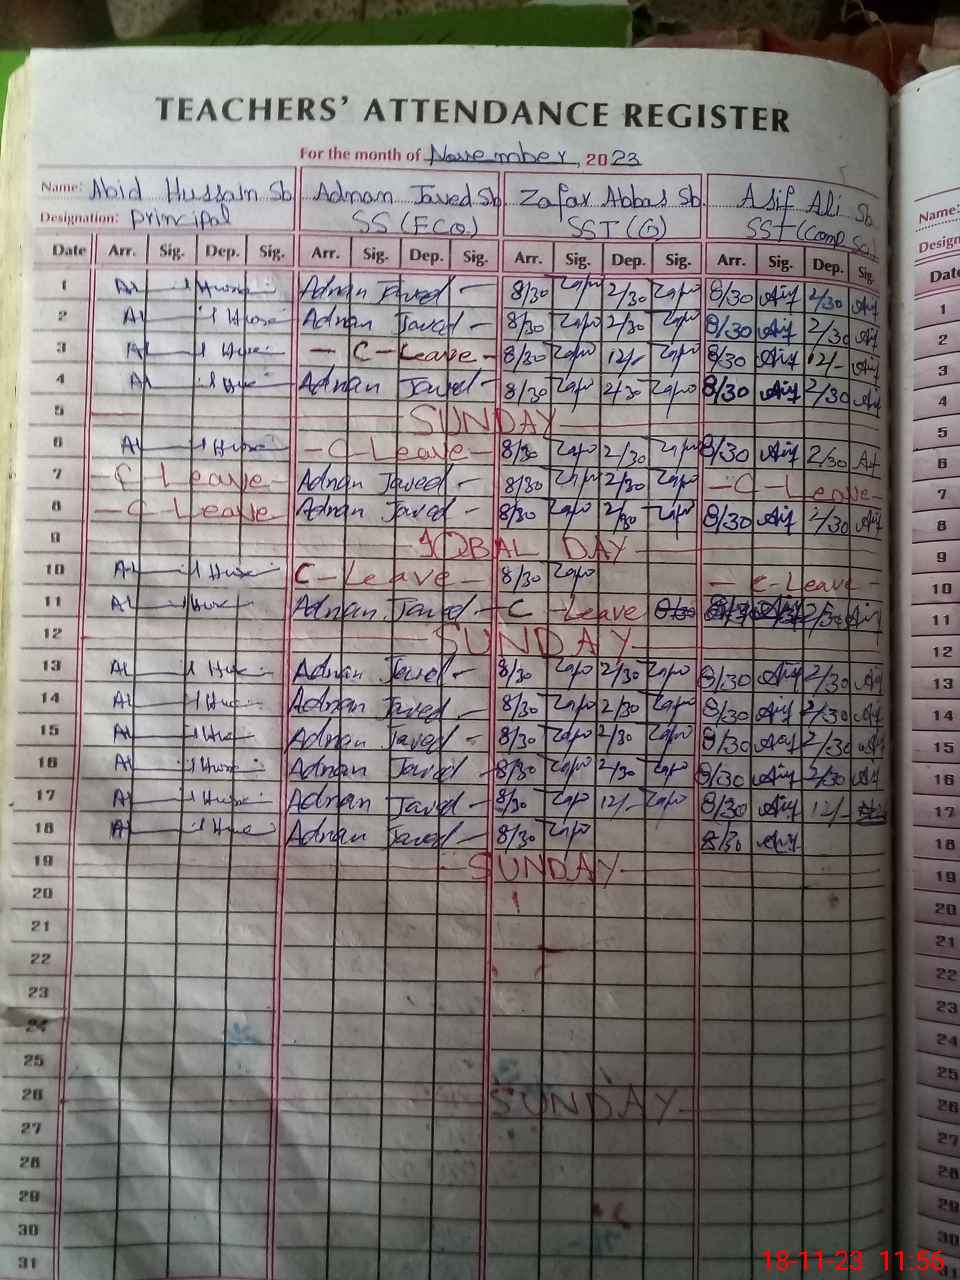 TEACHERS' ATTENDANCE REGISTER
For the month of November, 2023
Name: Abid Hussain Sb Adnan Javed Sb Zafar Abbas Sb Asif Ali Sb Name:
Designation: Principal SS (ECO) SST (G) SST (Comp Sci) Design
Date Arr. Sig. Dep. Sig. Arr. Sig. Dep. Sig. Arr. Sig. Dep. Sig. Arr. Sig. Dep. Sig. Date
1 Adnan Javed 8/30 2/30 8/30 Asif 2/30 Asif 1
2 Adnan Javed 8/30 2/30 8/30 Asif 2/30 Asif 2
3 - C-Leave - 8/30 12/- 8/30 Asif 12/- Asif 3
4 Adnan Javed 8/30 2/30 8/30 Asif 2/30 Asif 4
5 SUNDAY 5
6 - C Leave - 8/30 2/30 8/30 Asif 2/30 6
7 - C Leave - Adnan Javed 8/30 2/30 - C - Leave - 7
8 - C Leave Adnan Javed 8/30 2/30 8/30 Asif 2/30 Asif 8
9 IQBAL DAY 9
10 C - Leave - 8/30 - C-Leave - 10
11 Adnan Javed - C - Leave 2/30 Asif 11
12 SUNDAY 12
13 Adnan Javed 8/30 2/30 8/30 Asif 2/30 Asif 13
14 Adnan Javed 8/30 2/30 8/30 Asif 2/30 Asif 14
15 Adnan Javed 8/30 2/30 8/30 Asif 2/30 Asif 15
16 Adnan Javed 8/30 2/30 8/30 Asif 2/30 Asif 16
17 Adnan Javed 8/30 12/- 8/30 Asif 12/- 17
18 Adnan Javed 8/30 8/30 Asif 18
19 SUNDAY 19
20 20
21 21
22 22
23 23
24 24
25 25
26 SUNDAY 26
27 27
28 28
29 29
30 30
31 31
18-11-23 11:56